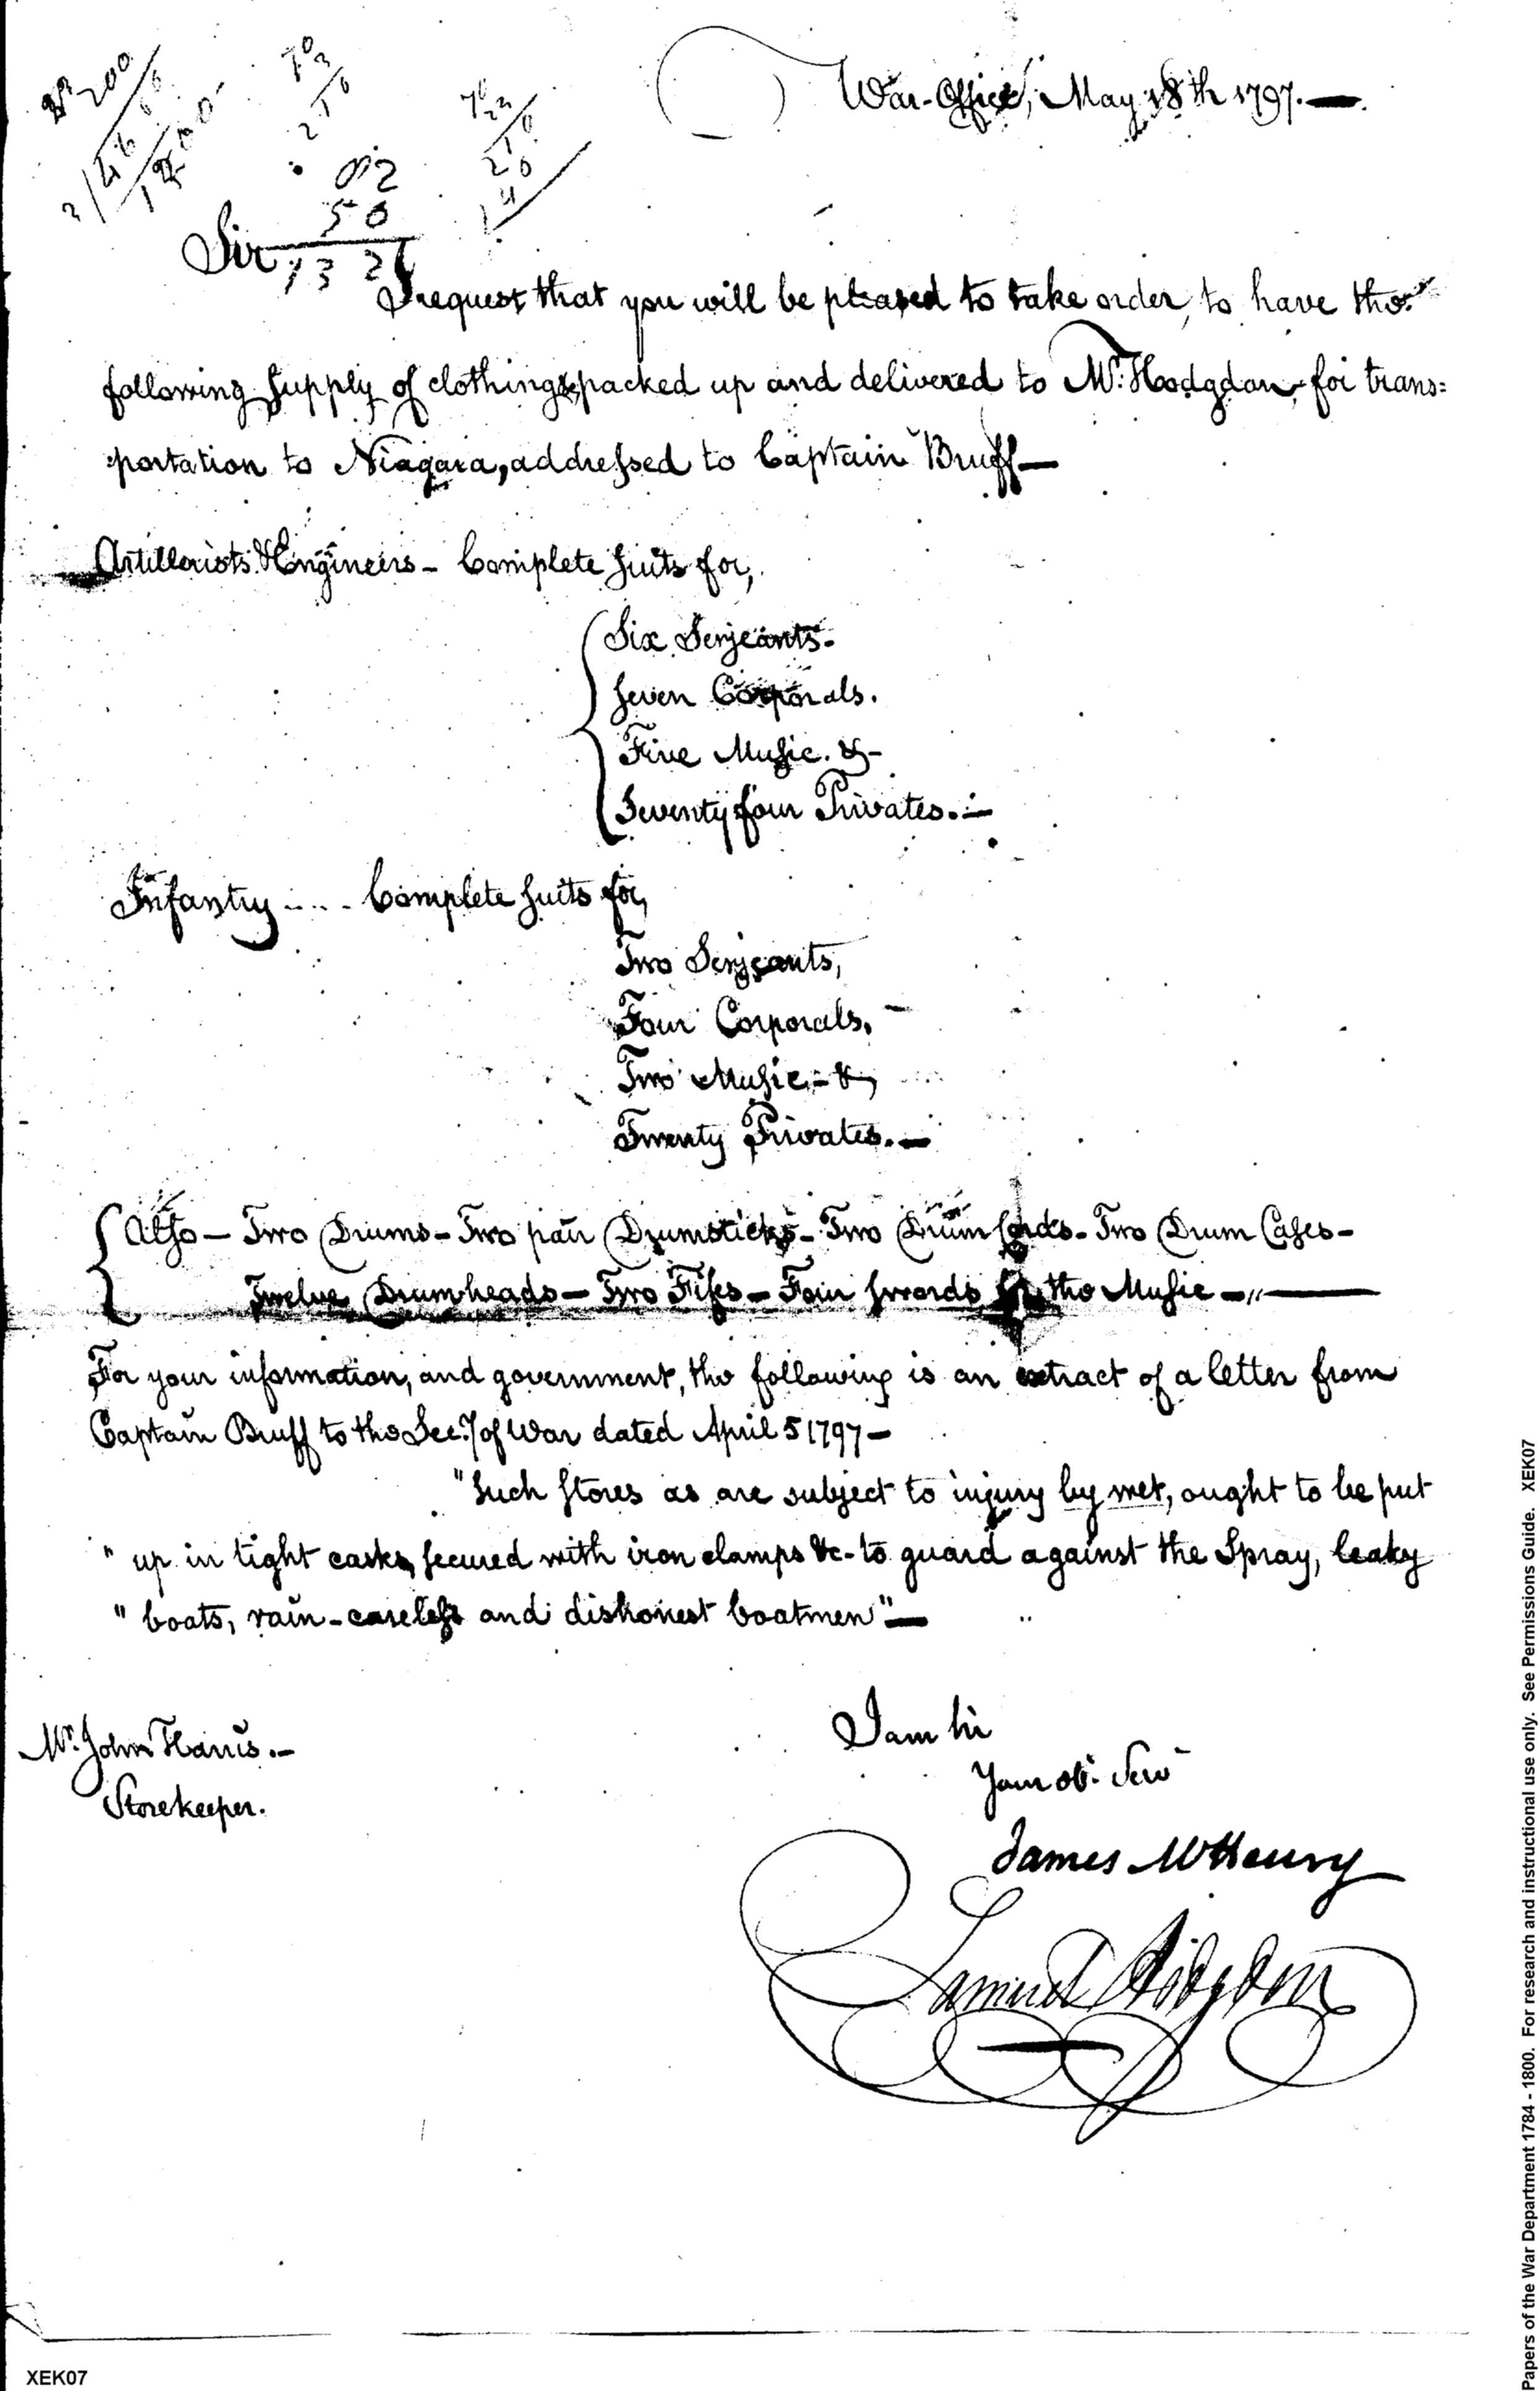 War-Office, May 18th 1797.—
Sir
92
50
132
I request that you will be pleased to take order, to have the
following supply of clothing &c, packed up and delivered to Mr. Hodgdon, for trans=
portation to Niagara, addressed to Captain Bruff—
Artillerists & Engineers – Complete suits for,
Six Serjeants.
Seven Corporals.
Five Music. &-
Seventy four Privates.—
Infantry .... Complete suits for,
Two Serjeants,
Four Corporals,
Two Music - &,
Twenty Privates.—
Also — Two Drums – Two pair Drumsticks – Two Drum Cords – Two Drum Cases –
Twelve Drumheads — Two Fifes — Four swords for the Music —
For your information, and government, the following is an extract of a letter from
Captain Bruff to the Secy of War dated April 5 1797 –
"Such stores as are subject to injury by wet, ought to be put
" up in tight casks, secured with iron clamps &c - to guard against the Spray, leaky
" boats, rain - careless and dishonest boatmen" —
I am Sir
Your ob. Serv
Mr. John Harris. –
Storekeeper.
James McHenry
Samuel Hodgdon
XEK07
Papers of the War Department 1784 - 1800. For research and instructional use only. See Permissions Guide. XEK07